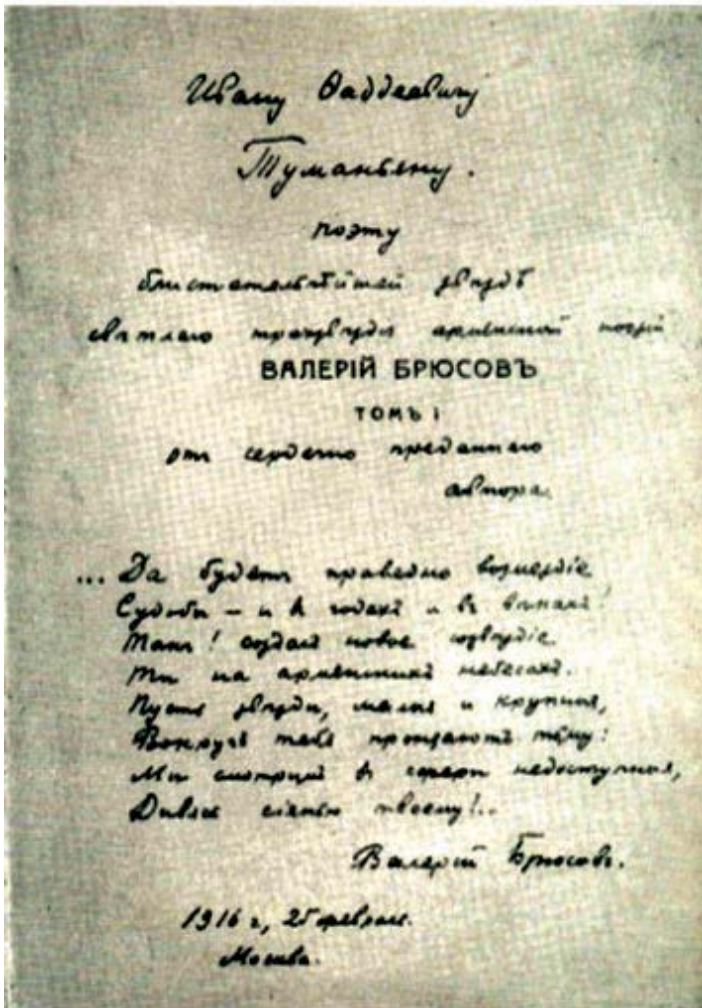 Ивану Фаддеевичу
Туманьяну.
поэту
блистательнѣйшей звѣздѣ
свѣтлаго созвѣздія армянской поэзіи
ВАЛЕРІЙ БРЮСОВЪ
ТОМЪ I
отъ сердечно преданнаго
автора.
... Да будетъ праведно возмездіе
Судьбы – и въ годахъ и въ вѣкахъ!
Такъ! создалъ новое созвѣздіе
Ты на армянскихъ небесахъ.
Пусть звѣзды, малыя и крупныя,
Вокругъ тебя пронзаютъ тьму:
Мы смотримъ въ сферы недоступныя,
Дивясь сіянью твоему!..
Валерій Брюсовъ.
1916 г., 25 февраля.
Москва.